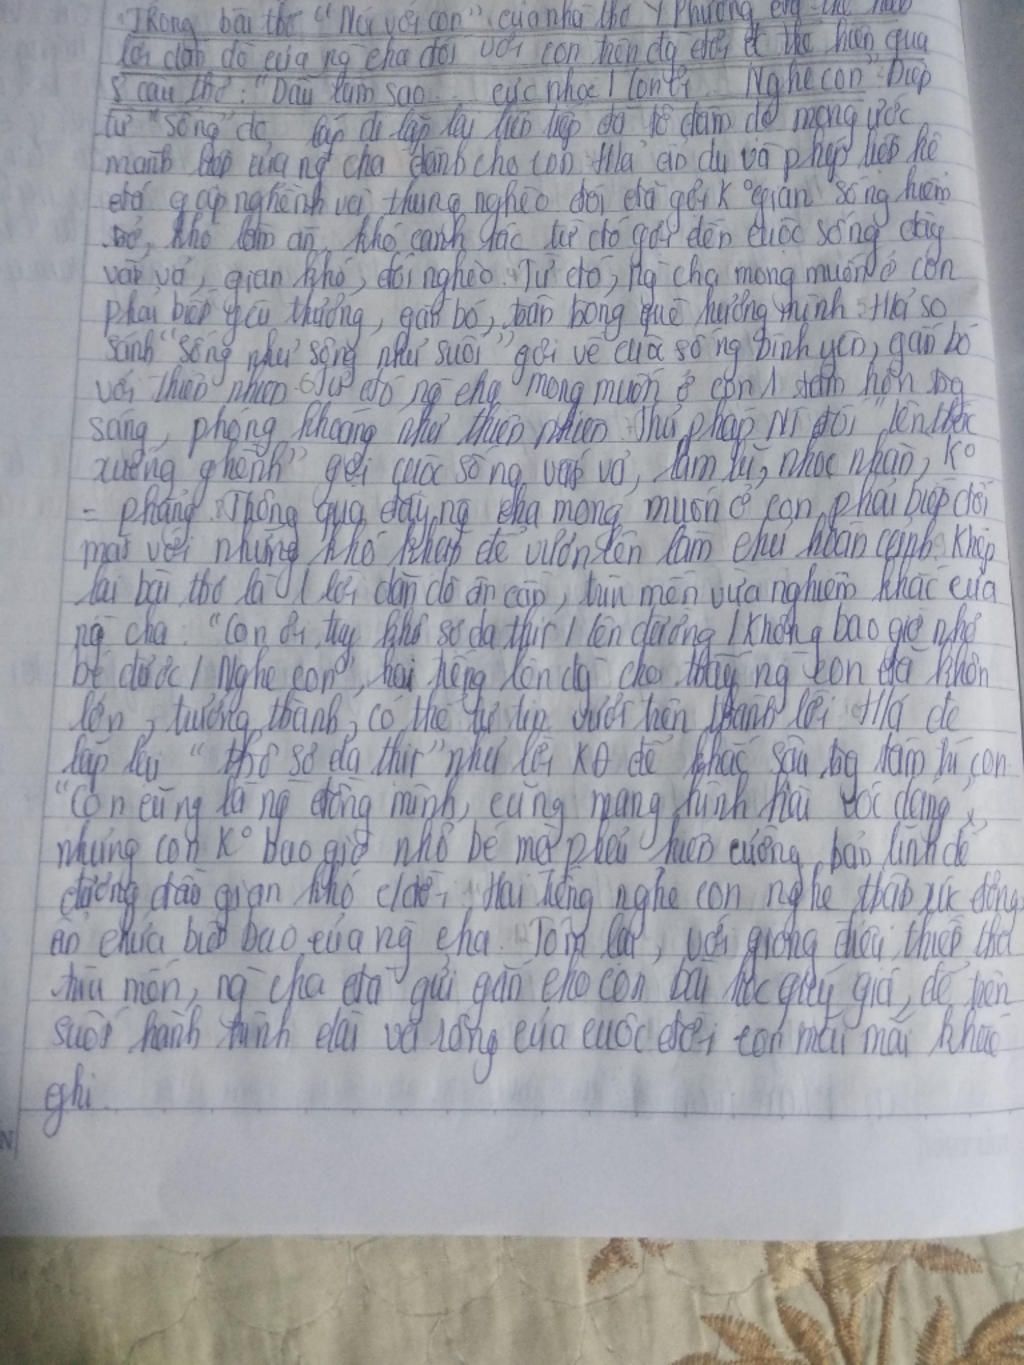 Trong bài thơ "Nói với con" của nhà thơ Y Phương đã thể hiện
lời dặn dò của ng cha đối với con trên đg đời đc thể hiện qua
câu thơ: "Dẫu làm sao... cực nhọc / Con ơi... Nghe con" Điệp
từ "sống" đc lặp đi lặp lại liên tiếp đã tô đậm đc mong ước
mạnh mẽ của ng cha dành cho con. H/a ẩn dụ và phép liệt kê
đá gập nghềnh và thung nghèo đói đã gợi K° gian sống hiểm
trở, khó làm ăn, khó canh tác từ đó gợi đến cuộc sống đầy
vất vả, gian khó, đói nghèo. Từ đó, ng cha mong muốn ở con
phải biết yêu thương, gắn bó, trân trọng quê hương mình. H/a so
sánh "sống như sông như suối" gợi về cuộc sống bình yên, gắn bó
với thiên nhiên. Từ đó ng cha mong muốn ở con 1 tâm hồn tog
sáng, phóng khoáng như thiên nhiên. Thủ pháp NT đối "lên thác
xuống ghềnh" gợi cuộc sống vất vả, lam lũ, nhọc nhằn, K°
= phẳng. Thông qua đây, ng cha mong muốn ở con phải biết đối
mặt với những khó khăn để vươn lên làm chủ hoàn cảnh. Khép
lại bài thơ là 1 lời dặn dò ân cần, trìu mến vừa nghiêm khắc của
ng cha: "Con ơi tuy thô sơ da thịt / Lên đường / Không bao giờ nhỏ
bé được / Nghe con", hai tiếng lên đg cho thấy ng con đã khôn
lớn, trưởng thành, có thể tự tin bước trên đg đời. H/á đc
lặp lại "thô sơ da thịt" như lời KĐ để khắc sâu tog tâm trí con
"Con cũng là ng đồng mình, cũng mang hình hài vóc dáng ấy,
nhưng con K° bao giờ nhỏ bé mà phải kiên cường, bản lĩnh để
đương đầu gian khó c/đời. Hai tiếng nghe con nghe thật xúc động,
ẩn chứa biết bao của ng cha. Tóm lại, với giọng điệu thiết tha
trìu mến, ng cha đã gửi gắm cho con bài học quý giá, để trên
suốt hành trình dài và rộng của cuộc đời con mãi mãi khắc
ghi.